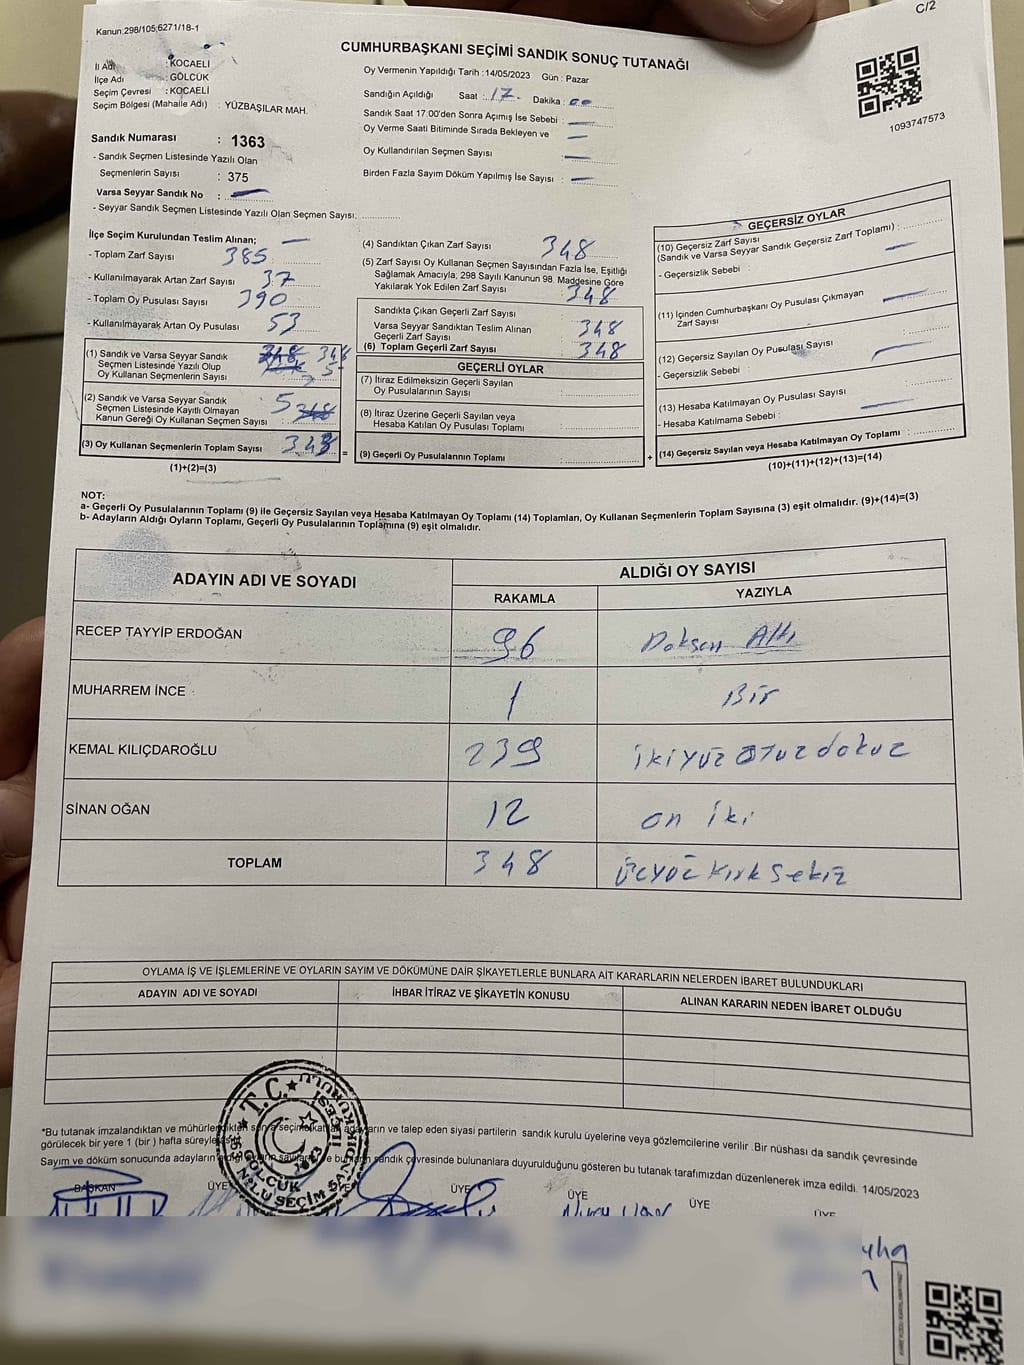 C/2
Kanun:298/105;6271/18-1
CUMHURBAŞKANI SEÇİMİ SANDIK SONUÇ TUTANAĞI
İl Adı : KOCAELİ
İlçe Adı : GÖLCÜK
Seçim Çevresi : KOCAELİ
Seçim Bölgesi (Mahalle Adı) : YÜZBAŞILAR MAH.
Sandık Numarası : 1363
- Sandık Seçmen Listesinde Yazılı Olan
Seçmenlerin Sayısı : 375
Varsa Seyyar Sandık No :
- Seyyar Sandık Seçmen Listesinde Yazılı Olan Seçmen Sayısı:
Oy Vermenin Yapıldığı Tarih :14/05/2023 Gün : Pazar
Sandığın Açıldığı Saat : 17 Dakika : 00
Sandık Saat 17.00'den Sonra Açımış İse Sebebi :
Oy Verme Saati Bitiminde Sırada Bekleyen ve
Oy Kullandırılan Seçmen Sayısı
Birden Fazla Sayım Döküm Yapılmış İse Sayısı :
1093747573
İlçe Seçim Kurulundan Teslim Alınan;
- Toplam Zarf Sayısı 385
- Kullanılmayarak Artan Zarf Sayısı 37
- Toplam Oy Pusulası Sayısı 390
- Kullanılmayarak Artan Oy Pusulası 53
(1) Sandık ve Varsa Seyyar Sandık
Seçmen Listesinde Yazılı Olup
Oy Kullanan Seçmenlerin Sayısı
(2) Sandık ve Varsa Seyyar Sandık
Seçmen Listesinde Kayıtlı Olmayan
Kanun Gereği Oy Kullanan Seçmen Sayısı 5
(3) Oy Kullanan Seçmenlerin Toplam Sayısı 348
(1)+(2)=(3)
(4) Sandıktan Çıkan Zarf Sayısı 348
(5) Zarf Sayısı Oy Kullanan Seçmen Sayısından Fazla İse, Eşitliği
Sağlamak Amacıyla; 298 Sayılı Kanunun 98. Maddesine Göre
Yakılarak Yok Edilen Zarf Sayısı : 348
Sandıkta Çıkan Geçerli Zarf Sayısı 348
Varsa Seyyar Sandıktan Teslim Alınan
Geçerli Zarf Sayısı
(6) Toplam Geçerli Zarf Sayısı 348
GEÇERLİ OYLAR
(7) İtiraz Edilmeksizin Geçerli Sayılan
Oy Pusulalarının Sayısı :
(8) İtiraz Üzerine Geçerli Sayılan veya
Hesaba Katılan Oy Pusulası Toplamı :
(9) Geçerli Oy Pusulalarının Toplamı :
GEÇERSİZ OYLAR
(10) Geçersiz Zarf Sayısı
(Sandık ve Varsa Seyyar Sandık Geçersiz Zarf Toplamı) :
- Geçersizlik Sebebi :
(11) İçinden Cumhurbaşkanı Oy Pusulası Çıkmayan
Zarf Sayısı :
(12) Geçersiz Sayılan Oy Pusulası Sayısı :
- Geçersizlik Sebebi :
(13) Hesaba Katılmayan Oy Pusulası Sayısı :
- Hesaba Katılmama Sebebi :
(14) Geçersiz Sayılan veya Hesaba Katılmayan Oy Toplamı :
(10)+(11)+(12)+(13)=(14)
NOT:
a- Geçerli Oy Pusulalarının Toplamı (9) ile Geçersiz Sayılan veya Hesaba Katılmayan Oy Toplamı (14) Toplamları, Oy Kullanan Seçmenlerin Toplam Sayısına (3) eşit olmalıdır. (9)+(14)=(3)
b- Adayların Aldığı Oyların Toplamı, Geçerli Oy Pusulalarının Toplamına (9) eşit olmalıdır.
ADAYIN ADI VE SOYADI ALDIĞI OY SAYISI
RAKAMLA YAZIYLA
RECEP TAYYİP ERDOĞAN 96 Doksan Altı
MUHARREM İNCE 1 Bir
KEMAL KILIÇDAROĞLU 239 ikiyüz otuz dokuz
SİNAN OĞAN 12 on iki
TOPLAM 348 üçyüz kırk sekiz
OYLAMA İŞ VE İŞLEMLERİNE VE OYLARIN SAYIM VE DÖKÜMÜNE DAİR ŞİKAYETLERLE BUNLARA AİT KARARLARIN NELERDEN İBARET BULUNDUKLARI
ADAYIN ADI VE SOYADI İHBAR İTİRAZ VE ŞİKAYETİN KONUSU ALINAN KARARIN NEDEN İBARET OLDUĞU
*Bu tutanak imzalandıktan ve mühürlendikten adayların ve talep eden siyasi partilerin sandık kurulu üyelerine veya gözlemcilerine verilir .Bir nüshası da sandık çevresinde
görülecek bir yere 1 (bir ) hafta süreyle
Sayım ve döküm sonucunda adayların sandık çevresinde bulunanlara duyurulduğunu gösteren bu tutanak tarafımızdan düzenlenerek imza edildi. 14/05/2023
T.C.
GÖLCÜK
BAŞKAN ÜYE ÜYE ÜYE ÜYE ÜYE